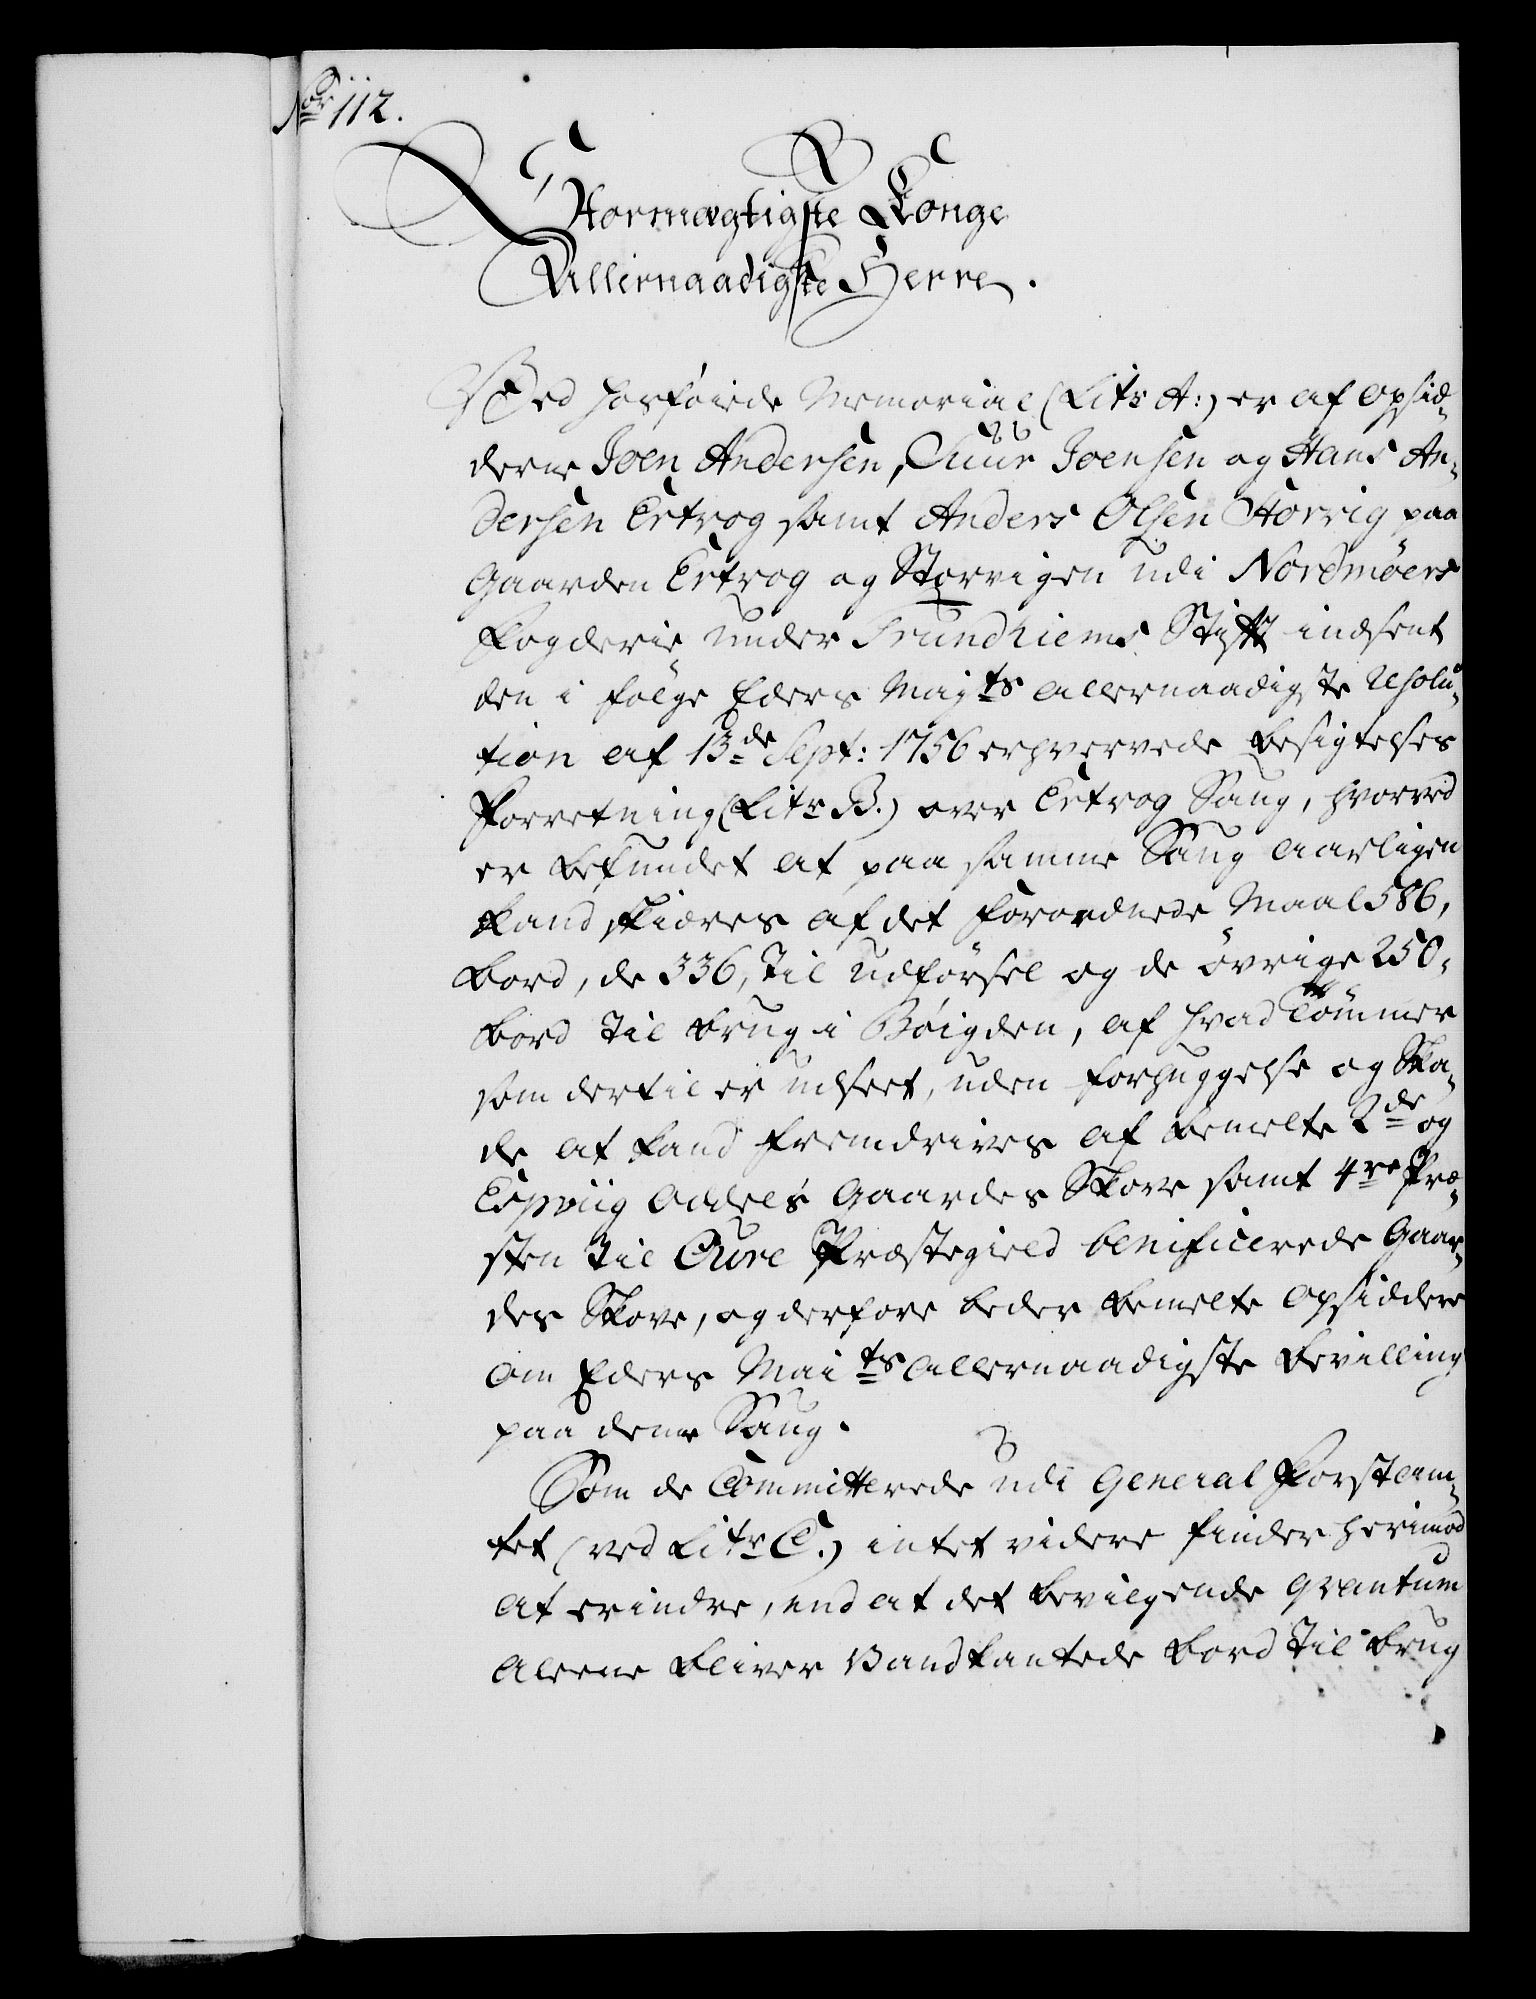 Nor 112.
Stormægtigste Konge
Allernaadigste Herre.
Ved hosføiede Memorial (Litr A:) er af Opsid-
derne Joen Andersen, Siuur Joensen og Hans An-
dersen Ertvog samt Anders Olsen Storvig paa
Gaarden Ertvog og Storvigen udi Nordmøers
Fogderie under Trundhiems Stift indsent
den i følge Eders Majts allernaadigste Resolu-
tion af 13de Sept: 1756 erhvervede Besigtelses
Forretning (Litr B.) over Ertvog Saug, hvorved
er befundet at paa samme Saug aarligen
kand skiæres af det forordnede Maal 586,
bord, de 336, til udførsel og de øvrige 250.
bord til brug i Bøigden, af hvad Tømmer
som dertil er udseet, uden forhuggelse og Ska-
de at kand fremdrives af bemelte 2de og
Espviig Oddels Gaardes Skove samt 4re Præ-
sten til Øure Præstegield benificerede Gaar-
des Skove, og derfore beder bemelte Opsiddere
om Eders Maits allernaadigste Bevilling
paa denne Saug.
Som de Committerede udi General Forstam-
tet (ved Litr C.) intet videre finder herimod
at erindre, end at det bevilgende qvantum
alleene bliver Vandkantede bord til brug